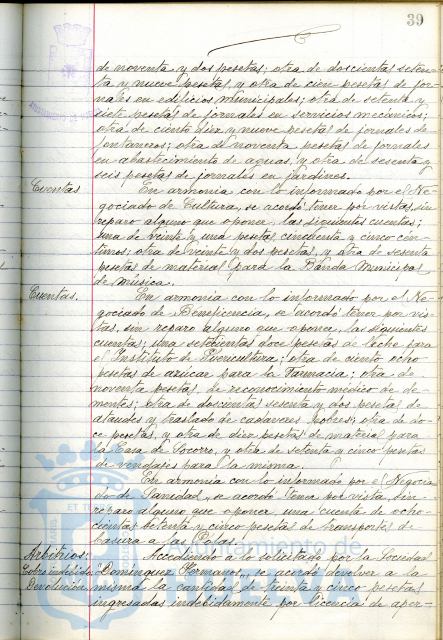 39
de noventa y dos pesetas; otra de doscientas seten-
ta y nueve pesetas, y otra de cien pesetas de jor-
nales en edificios municipales; otra de setenta y
siete pesetas de jornales en servicios mecánicos;
otra de ciento diez y nueve pesetas de jornales de
fontaneros; otra de noventa pesetas de jornales
en abastecimiento de aguas, y otra de sesenta y
seis pesetas de jornales en jardines.
Cuentas En armonía con lo informado por el Ne-
gociado de Cultura, se acordó tener por vistas, sin
reparo alguno que oponer, las siguientes cuentas;
una de veinte y una pesetas cincuenta y cinco cén-
timos; otra de veinte y dos pesetas, y otra de sesenta
pesetas de material para la Banda Municipal
de música.
Cuentas. En armonía con lo informado por el Ne-
gociado de Beneficencia, se acordó tener por vis-
tas, sin reparo alguno que oponer, las siguientes
cuentas; una setecientas doce pesetas de leche para
el Instituto de Puericultura; otra de ciento ocho
pesetas de azúcar para la Farmacia; otra de
noventa pesetas de reconocimiento médico de de-
mentes; otra de doscientas sesenta y dos pesetas de
ataudes y traslado de cadáveres pobres; otra de do-
ce pesetas, y otra de diez pesetas de material para
la Casa de Socorro, y otra de setenta y cinco pesetas
de vendajes para la misma.
En armonía con lo informado por el Negocia-
do de Sanidad, se acordó tener por vista, sin
reparo alguno que oponer, una cuenta de ocho-
cientas setenta y cinco pesetas de transportes de
basura a las
Arbitrios: Accediendo a lo solicitado por la Sociedad
Cobro indebido "Domínguez Hermanos", se acordó devolver a la
Devolución misma la cantidad de treinta y cinco pesetas
ingresadas indebidamente por licencia de aper-